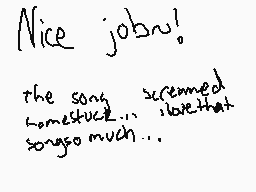 Nice jobn!
the song screamed
homestuck... ilove that
songso much...